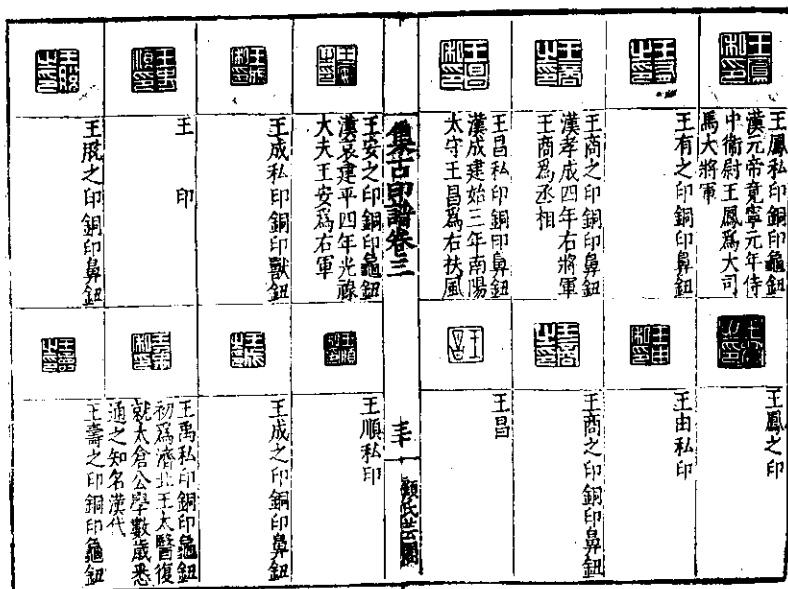 王鳳私印銅印龜鈕
漢元帝竟寧元年侍
中衛尉王鳳爲大司
馬大將軍
王有之印銅印鼻鈕
王商之印銅印鼻鈕
漢孝成四年右將軍
王商爲丞相
王昌私印銅印鼻鈕
漢成建始三年南陽
太守王昌爲右扶風
王鳳之印
王由私印
王商之印銅印鼻鈕
王昌
集古印譜卷三
三十
顧氏芸閣
王安之印銅印龜鈕
漢哀建平四年光祿
大夫王安爲右軍
王成私印銅印獸鈕
王　印
王殷之印銅印鼻鈕
王順私印
王成之印銅印鼻鈕
王禹私印銅印龜鈕
初爲濟北王太醫復
就太倉公學數歲悉
通之知名漢代
王壽之印銅印龜鈕